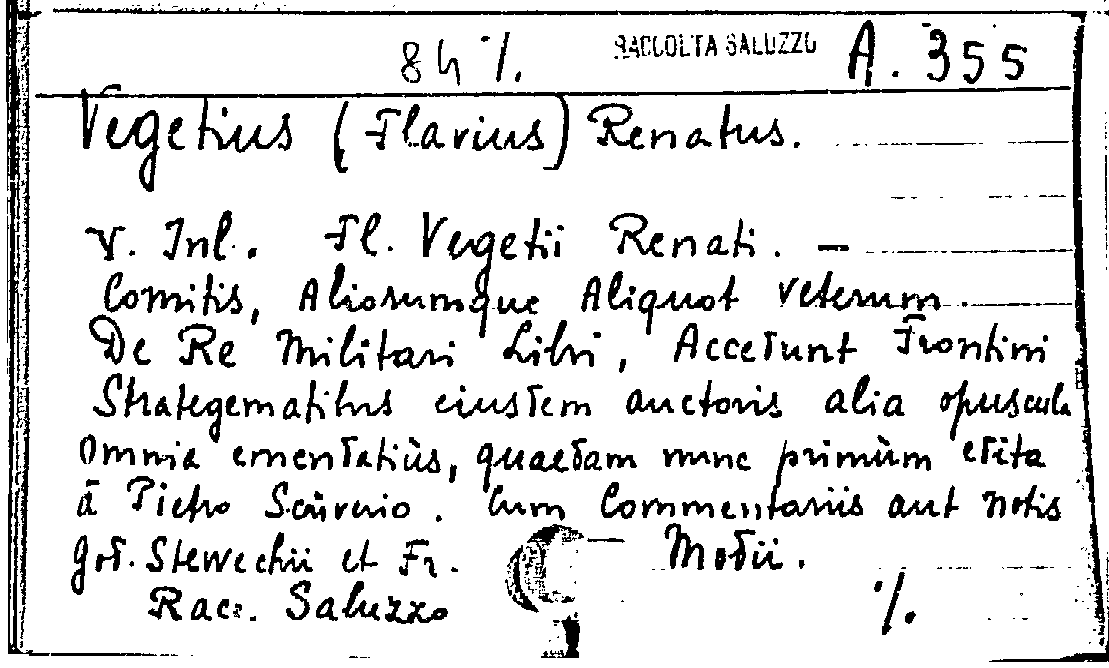 84 ./. RACCOLTA SALUZZO A. 355
Vegetius (Flavius) Renatus.
V. Inl. Fl. Vegetii Renati. —
Comitis, Aliorumque Aliquot veterum
De Re Militari Libri, Accedunt Frontini
Strategematibus eiusdem auctoris alia opuscula
Omnia emendatiùs, quaedam nunc primùm edita
à Pietro Scriverio. Cum Commentariis aut notis
God. Stewechii et Fr. — Modii.
Racc. Saluzzo ./.